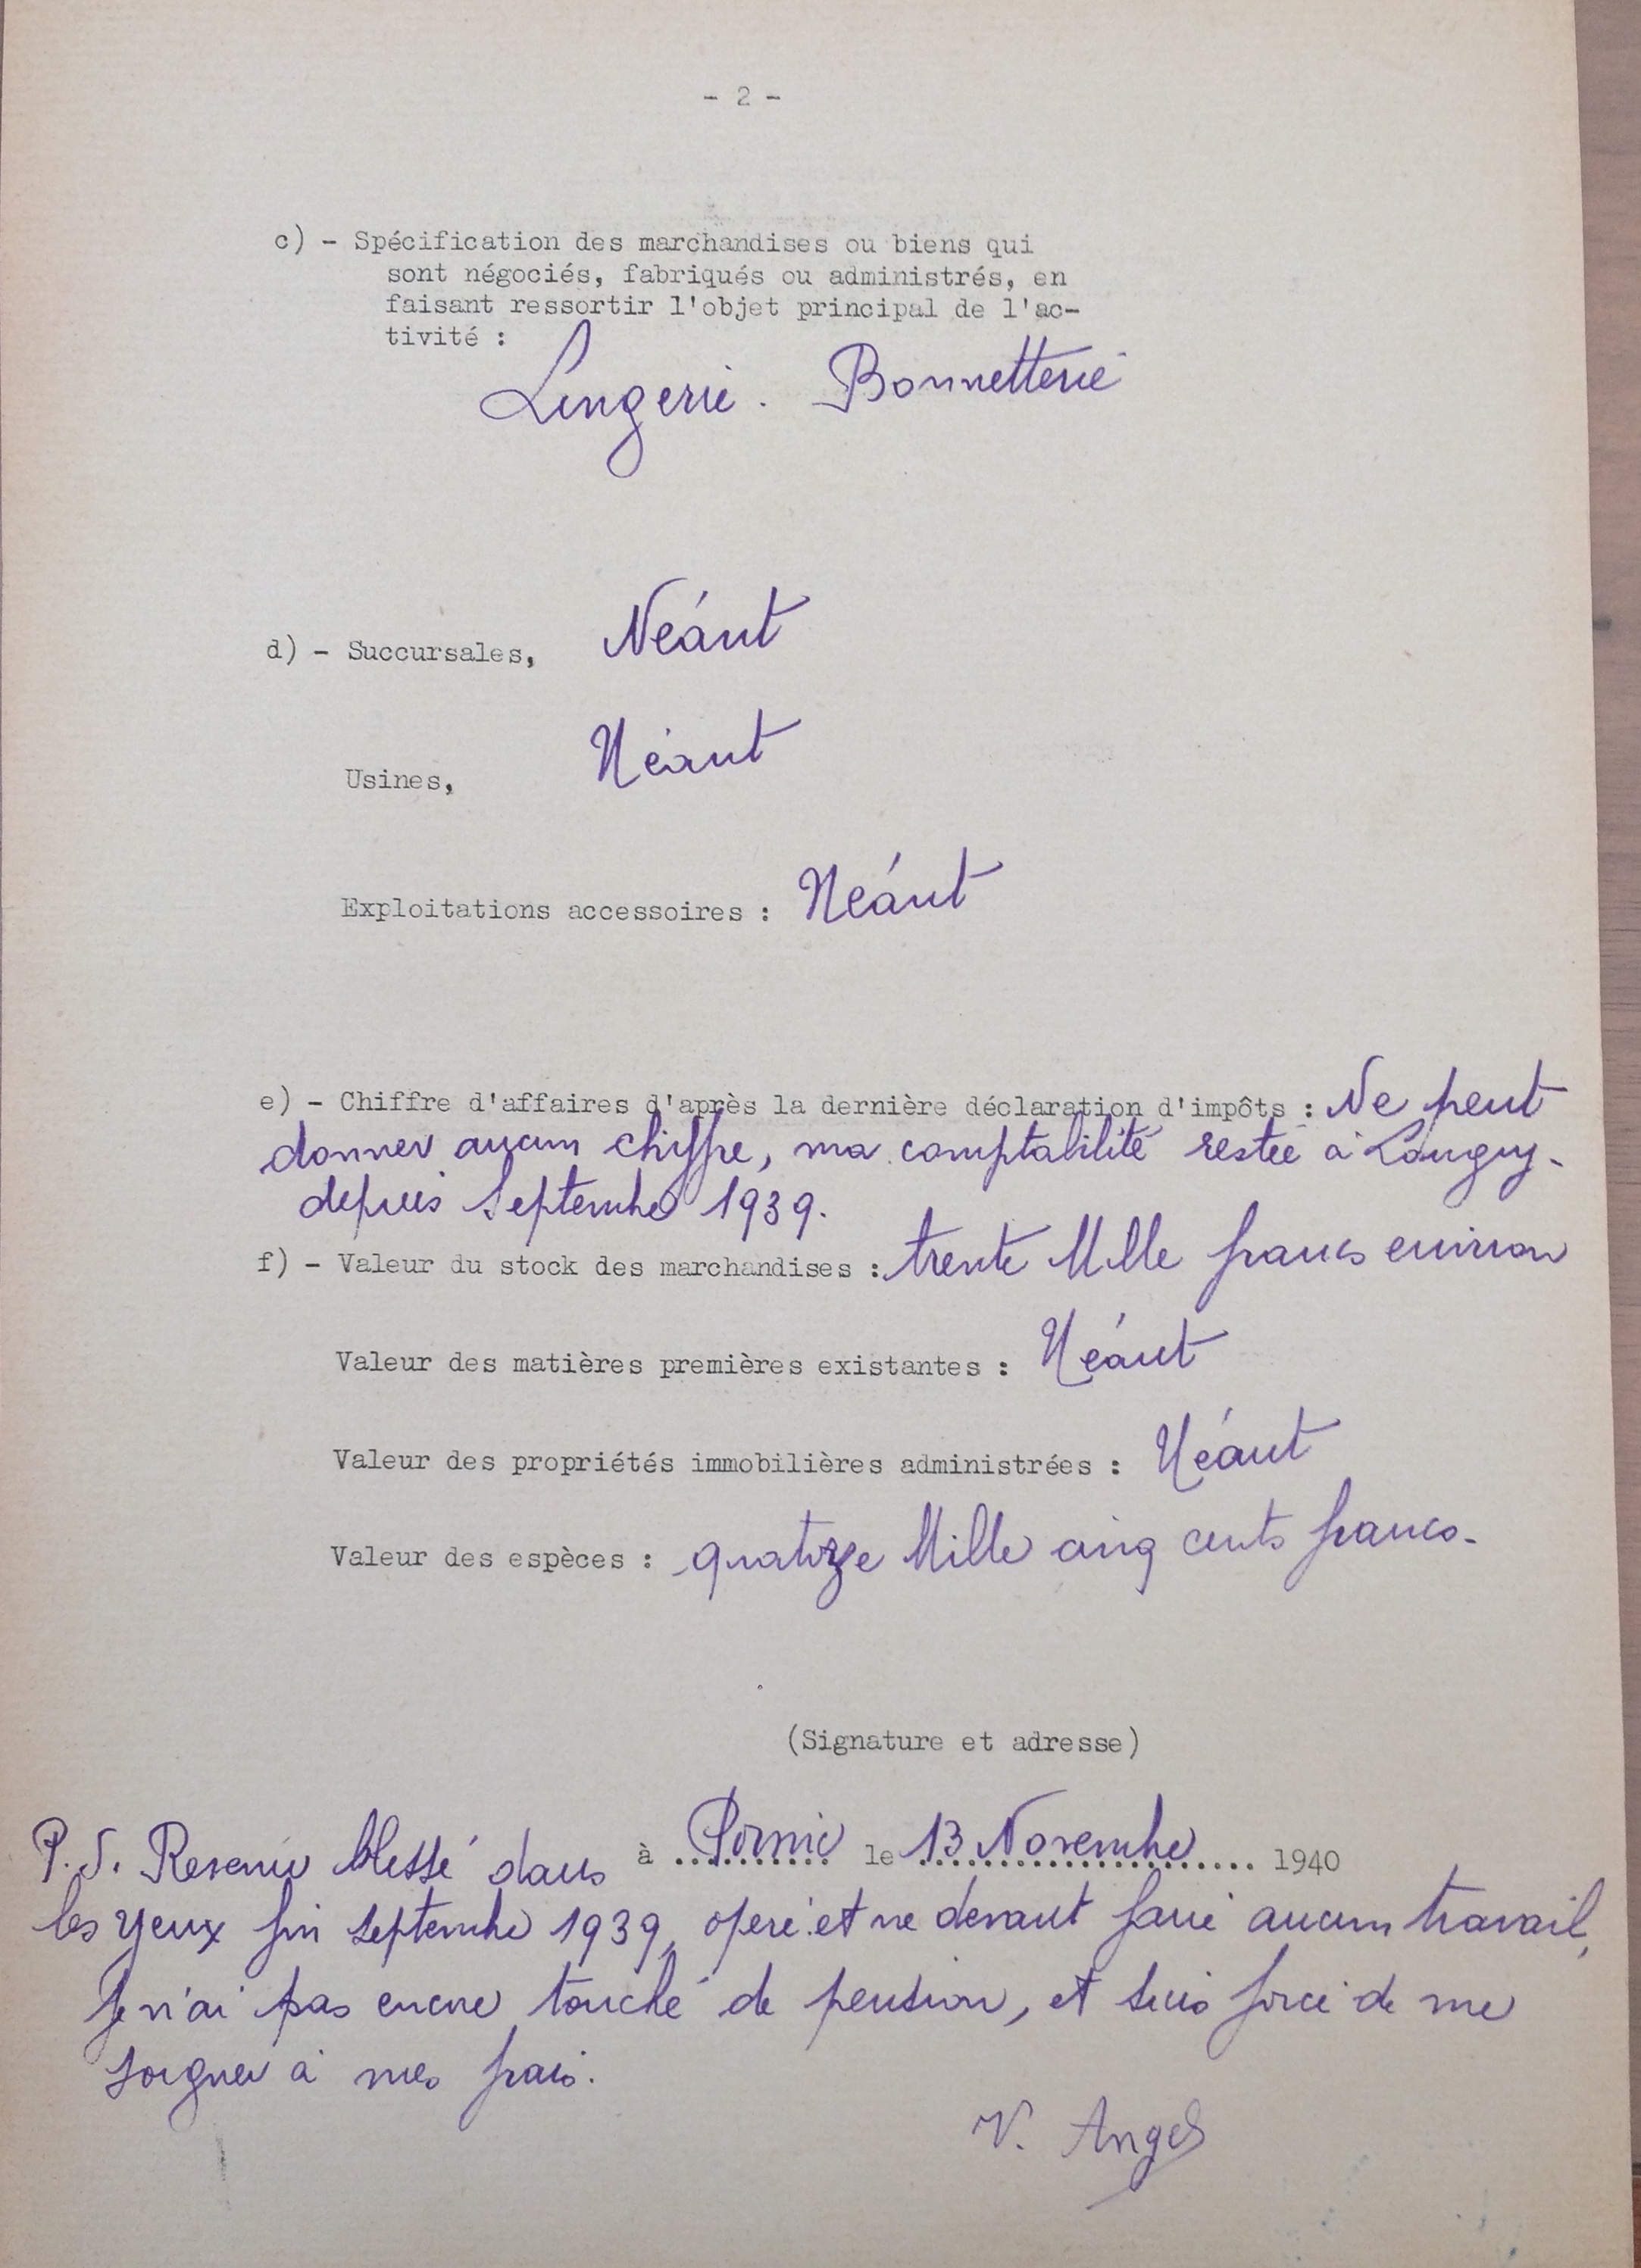 - 2 -
c) - Spécification des marchandises ou biens qui
sont négociés, fabriqués ou administrés, en
faisant ressortir l'objet principal de l'ac-
tivité :
Lingerie. Bonnetterie
d) - Succursales, Néant
Usines, Néant
Exploitations accessoires : Néant
e) - Chiffre d'affaires d'après la dernière déclaration d'impôts : Ne peut
donner aucun chiffre, ma comptabilité restée à Longwy-
depuis Septembre 1939.
f) - Valeur du stock des marchandises : trente Mille francs environ
Valeur des matières premières existantes : Néant
Valeur des propriétés immobilières administrées : Néant
Valeur des espèces : quatorze Mille cinq cents francs-
(Signature et adresse)
à Pornic le 13 Novembre 1940
P.S. Revenu blessé dans
les yeux fin septembre 1939, opéré et ne devant faire aucun travail,
Je n'ai pas encore touché de pension, et suis forcé de me
soigner à mes frais.
V. Angel